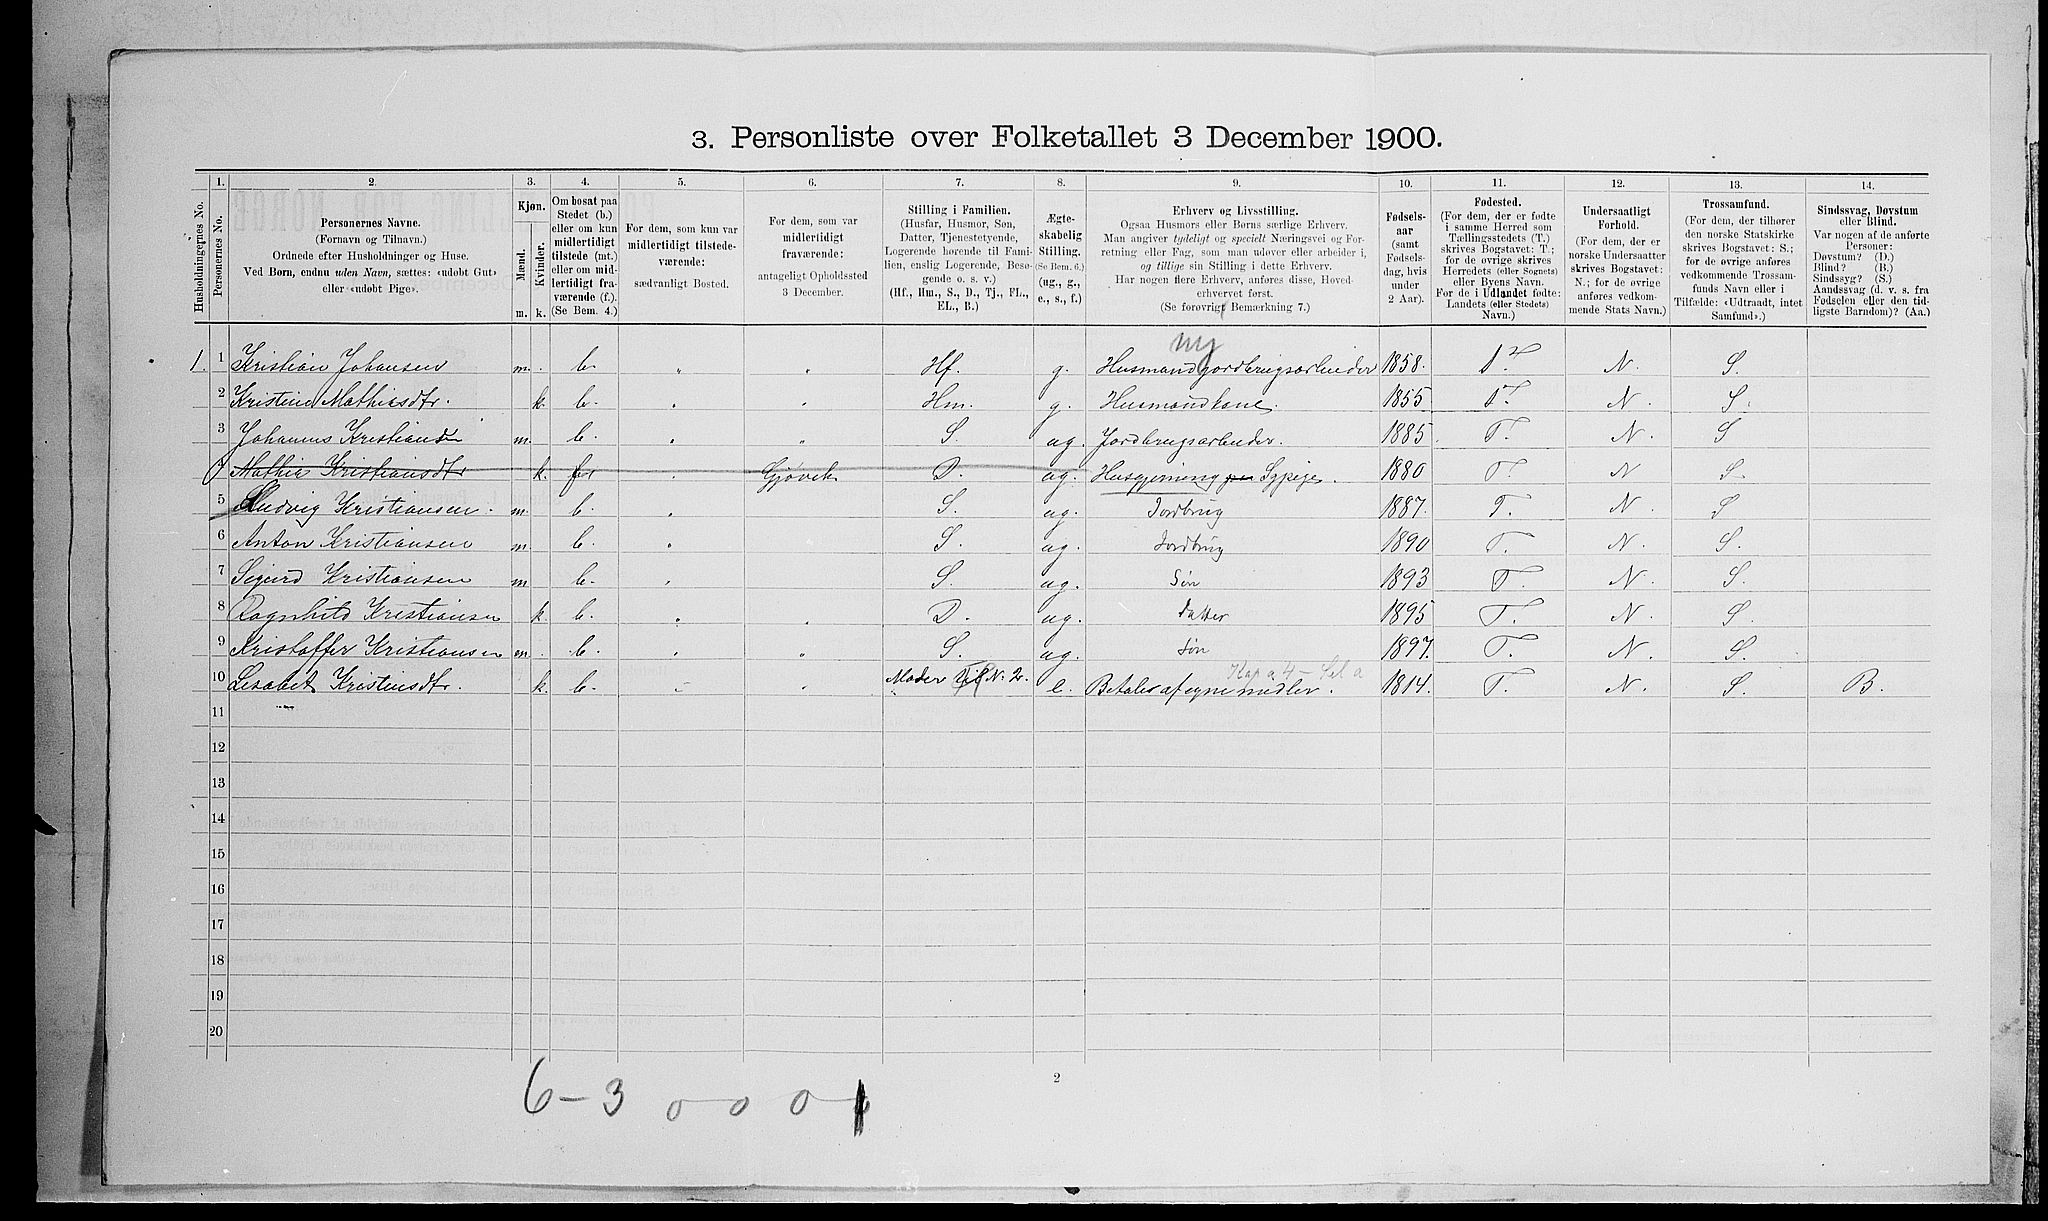 3. Personliste over Folketallet 3 December 1900.
Husholdningernes No.
1.
Personernes No.
2.
Personernes Navne.
(Fornavn og Tilnavn.)
Ordnede efter Husholdninger og Huse.
Ved Børn, endnu uden Navn, sættes: «udøbt Gut»
eller «udøbt Pige».
3.
Kjøn.
Mænd.
Kvinder.
m. k.
4.
Om bosat paa
Stedet (b.)
eller om kun
midlertidigt
tilstede (mt.)
eller om mid-
lertidigt fra-
værende (f.).
(Se Bem. 4.)
5.
For dem, som kun var
midlertidigt tilstede-
værende:
sædvanligt Bosted.
6.
For dem, som var
midlertidigt
fraværende:
antageligt Opholdssted
3 December.
7.
Stilling i Familien.
(Husfar, Husmor, Søn,
Datter, Tjenestetyende,
Logerende hørende til Fami-
lien, enslig Logerende, Besø-
gende o. s. v.)
(Hf., Hm., S., D., Tj., FL.,
EL., B.)
8.
Ægte-
skabelig
Stilling.
(Se Bem. 6.)
(ug., g.,
e., s., f.)
9.
Erhverv og Livsstilling.
Ogsaa Husmors eller Børns særlige Erhverv.
Man angiver tydeligt og specielt Næringsvei og For-
retning eller Fag, som man udøver eller arbeider i,
og tillige sin Stilling i dette Erhverv.
Har nogen flere Erhverv, anføres disse, Hoved-
erhvervet først.
(Se forøvrigt Bemærkning 7.)
10.
Fødsels-
aar
(samt
Fødsels-
dag, hvis
under
2 Aar).
11.
Fødested.
(For dem, der er fødte
i samme Herred som
Tællingsstedets (T.)
skrives Bogstavet: T.;
for de øvrige skrives
Herredets (eller Sognets)
eller Byens Navn.
For de i Udlandet fødte:
Landets (eller Stedets)
Navn.)
12.
Undersaatligt
Forhold.
(For dem, der er
norske Undersaatter
skrives Bogstavet:
N.; for de øvrige
anføres vedkom-
mende Stats Navn.)
13.
Trossamfund.
(For dem, der tilhører
den norske Statskirke
skrives Bogstavet: S.;
for de øvrige anføres
vedkommende Trossam-
funds Navn eller i
Tilfælde: «Udtraadt, intet
Samfund».)
14.
Sindssvag, Døvstum
eller Blind.
Var nogen af de anførte
Personer:
Døvstum? (D.)
Blind? (B.)
Sindssyg? (S.)
Aandssvag (d. v. s. fra
Fødselen eller den tid-
ligste Barndom)? (Aa.)
1. 1 Kristian Johansen m. b. " " Hf. g. Husmand jordbrugsarbeider 1858. N. S.
2 Kristine Mathiasdtr. k. b. " " Hm. g. Husmandkone. 1855 T. N. S.
3 Johannes m. b. " " S. ug. Jordbrugsarbeider. 1885. T. N. S
Mathia Kristiansdtr k. Gjøvik D. ug. Husgjerning Sypige. 1880 T. N S.
5 Ludvig Kristiansen. m. b. " S. ug. Jordbrug 1887. T. N. S
6 Anton Kristiansen m. b. " S. ug. Jordbrug 1890 T. N. S.
7 Sigurd Kristiansen m b. " S. ug. Søn 1893 T. N. S.
8 Ragnhild Kristiansen k. b. " " D. ug. Datter 1895 T. N. S.
9 Kristoffer Kristiansen m. b. " " S. ug. Søn 1897. T. N. S.
10 Kristensdtr. k. b. " " Moder Til N: 2. e. Betales af egne midler. 1814. T. N. S. B.
11
12
13
14
15
16
17
18
19
20
2
6-3 0 0 0 1